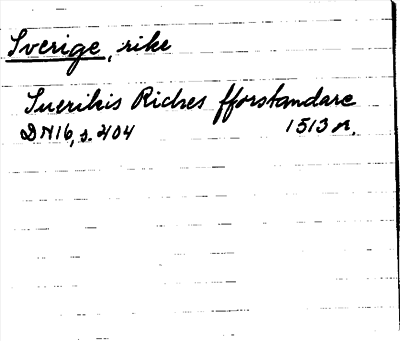 Sverige, rike
Suerikis Riches fforstandare
DN16, s. 404 1513 A.